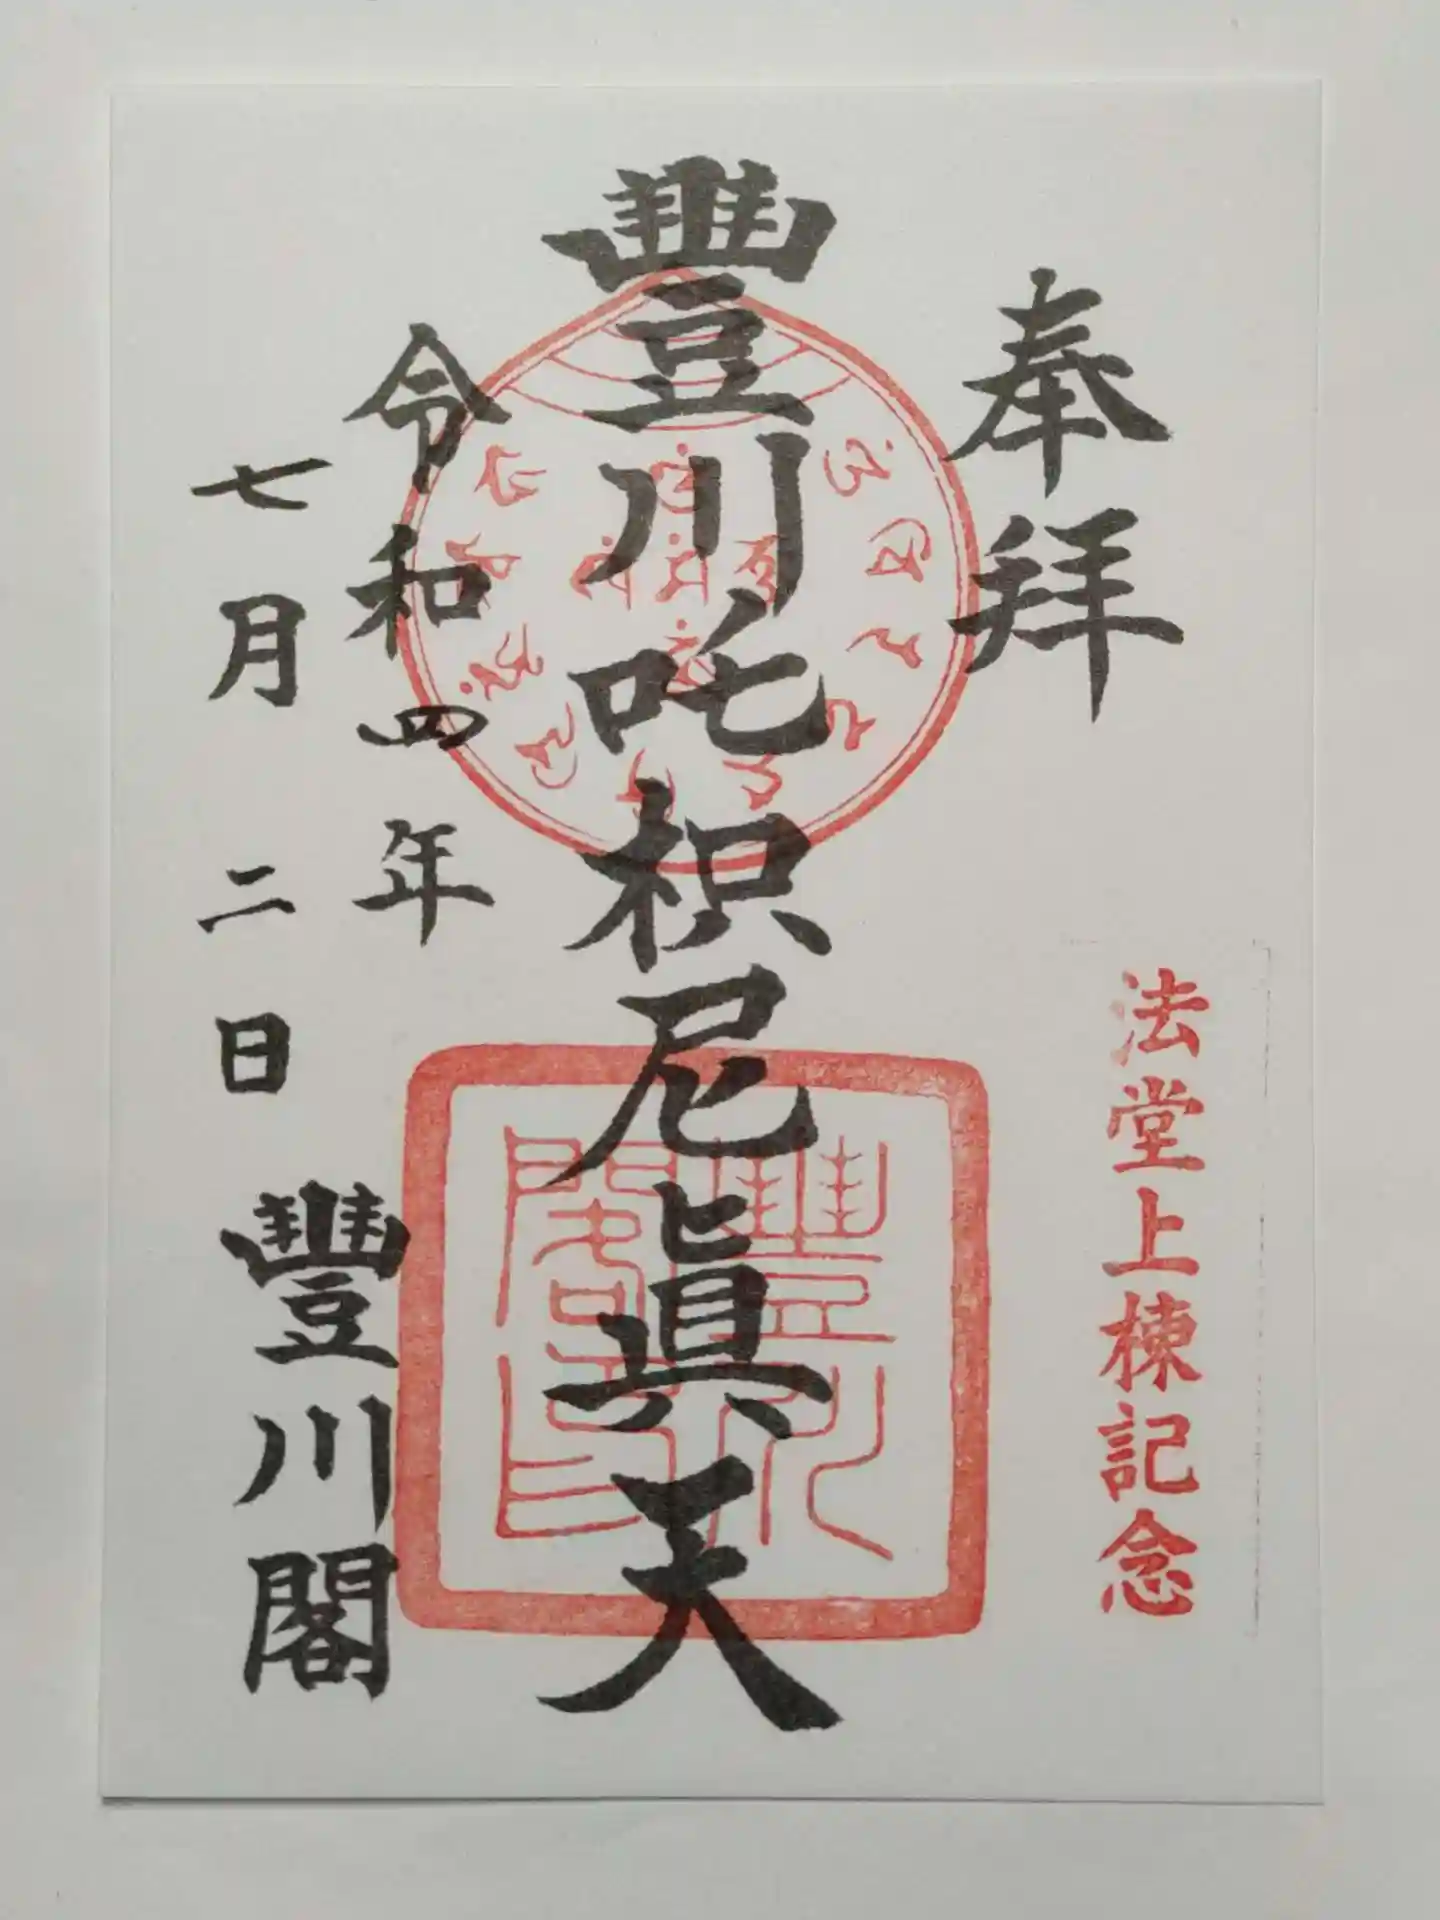 奉拜
法堂上棟記念
豐川吒枳尼眞天
令和四年
七月二日
豐川閣
豐川閣印